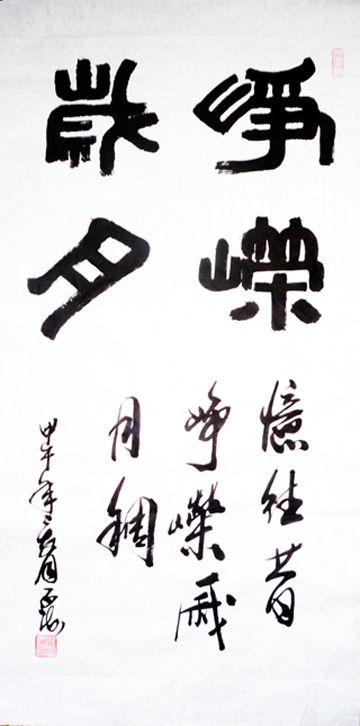 崢嶸
歲月
憶往昔
崢嶸歲
月稠
甲午年